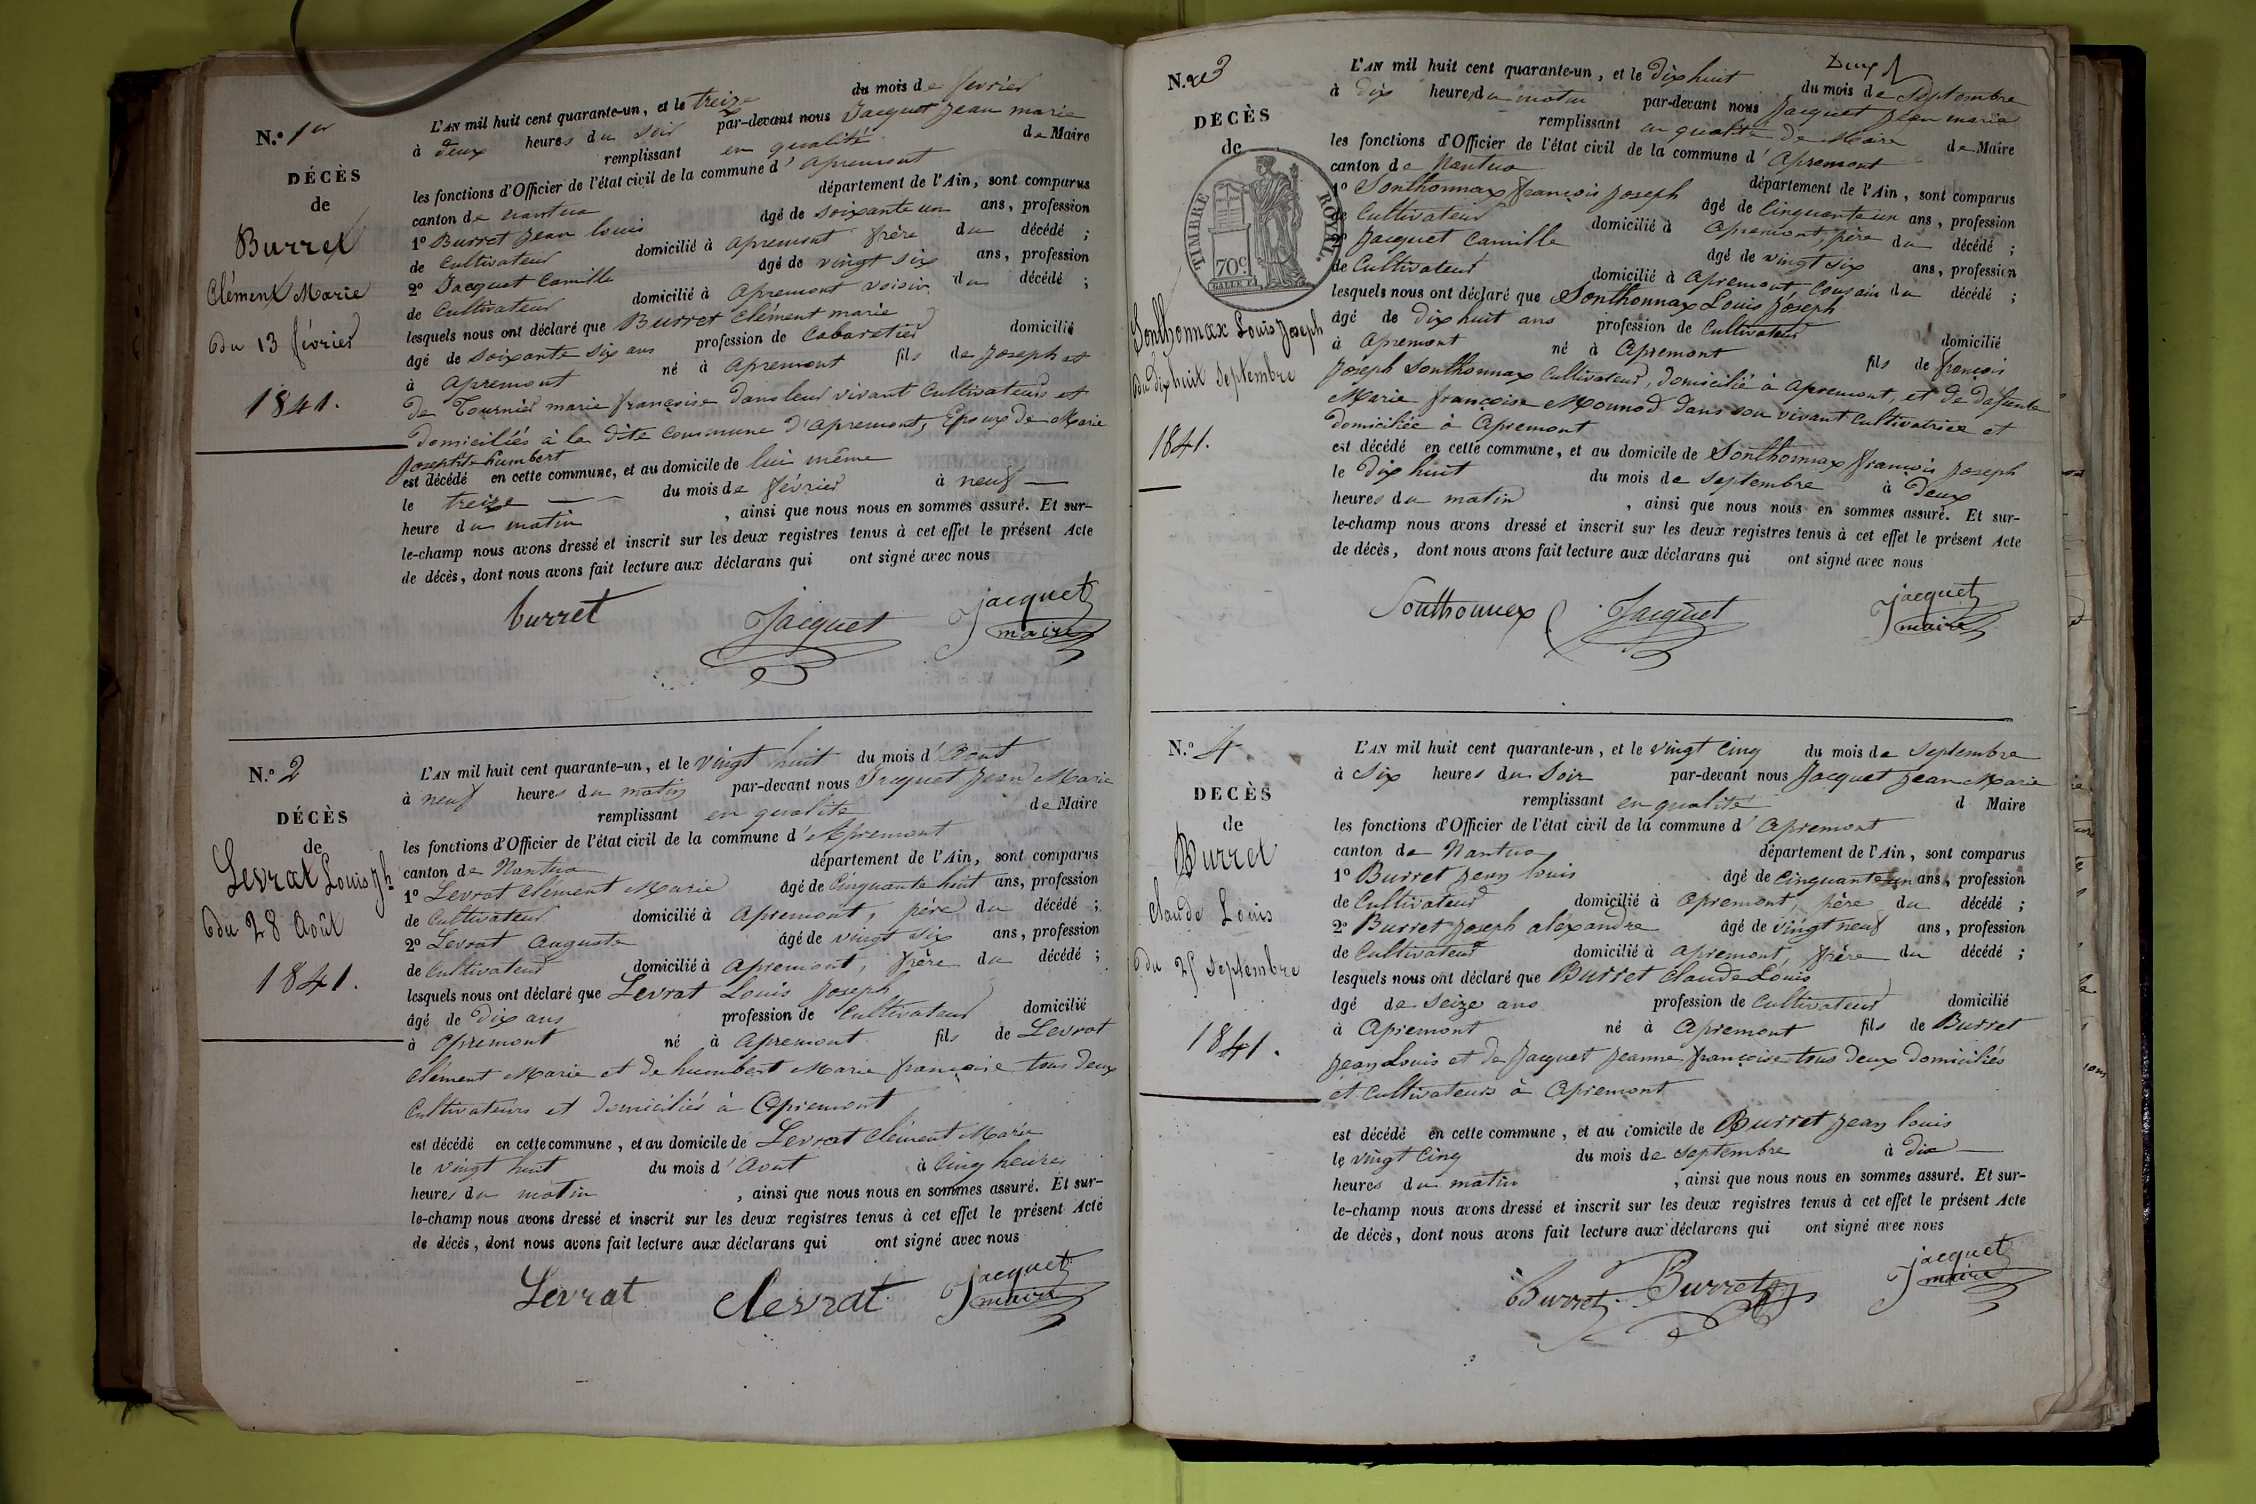 N.º 1er
DÉCÈS
de
Burret
Clément Marie
du 13 février
1841.
L'AN mil huit cent quarante-un, et le treize du mois de février
à deux heures du soir par-devant nous Jacquet Jean marie
remplissant en qualité de Maire
les fonctions d'Officier de l'état civil de la commune d'apremont
canton de nantua département de l'Ain, sont comparus
1º Burret Jean louis âgé de soixante un ans, profession
de Cultivateur domicilié à apremont frère du décédé ;
2º Jacquet Camille âgé de vingt six ans, profession
de Cultivateur domicilié à apremont voisin du décédé ;
lesquels nous ont déclaré que Burret Clément marie
âgé de soixante six ans profession de Cabaretier domicilié
à apremont né à apremont fils de Joseph et
de Tournier marie françoise dans leur vivant Cultivateurs et
domiciliés à la dite commune d'apremont, Epoux de Marie
Josephte humbert
est décédé en cette commune, et au domicile de lui même
le treize du mois de février à neuf
heure du matin , ainsi que nous nous en sommes assuré. Et sur-
le-champ nous avons dressé et inscrit sur les deux registres tenus à cet effet le présent Acte
de décès, dont nous avons fait lecture aux déclarans qui ont signé avec nous
burret Jacquet Jacquet
maire
N.º 2
DÉCÈS
de
Levrat Louis Jh
du 28 Août
1841.
L'AN mil huit cent quarante-un, et le vingt huit du mois d'Aout
à neuf heures du matin par-devant nous Jacquet Jean Marie
remplissant en qualité de Maire
les fonctions d'Officier de l'état civil de la commune d'Apremont
canton de Nantua département de l'Ain, sont comparus
1º Levrat Clément Marie âgé de Cinquante huit ans, profession
de Cultivateur domicilié à apremont, père du décédé ;
2º Levrat auguste âgé de vingt six ans, profession
de Cultivateur domicilié à apremont, frère du décédé ;
lesquels nous ont déclaré que Levrat Louis Joseph
âgé de dix ans profession de Cultivateur domicilié
à apremont né à apremont fils de Levrat
Clément Marie et de humbert Marie françoise tous deux
Cultivateurs et domiciliés à Apremont
est décédé en cette commune, et au domicile de Levrat Clément Marie
le vingt huit du mois d'Aout à Cinq heures
heures du matin , ainsi que nous nous en sommes assuré. Et sur-
le-champ nous avons dressé et inscrit sur les deux registres tenus à cet effet le présent Acte
de décès, dont nous avons fait lecture aux déclarans qui ont signé avec nous
Levrat Clevrat Jacquet
maire
Deux
N.º 3
DÉCÈS
de
TIMBRE ROYAL.
70c
Sonthonnax Louis Joseph
du dix huit Septembre
1841.
L'AN mil huit cent quarante-un, et le dix huit du mois de Septembre
à dix heures du matin par-devant nous Jacquet Jean marie
remplissant en qualité de Maire de Maire
les fonctions d'Officier de l'état civil de la commune d'Apremont
canton de Nantua département de l'Ain, sont comparus
1º Sonthonnax françois Joseph âgé de Cinquante un ans, profession
de Cultivateur domicilié à apremont, père du décédé ;
2º Jacquet Camille âgé de vingt six ans, profession
de Cultivateur domicilié à apremont, Cousin du décédé ;
lesquels nous ont déclaré que Sonthonnax Louis Joseph
âgé de dix huit ans profession de Cultivateur domicilié
à apremont né à Apremont fils de françois
Joseph Sonthonnax Cultivateur, domicilié à apremont, et de défunte
Marie françoise Mounod dans son vivant Cultivatrice et
domiciliée à Apremont
est décédé en cette commune, et au domicile de Sonthonnax françois Joseph
le dix huit du mois de septembre à deux
heures du matin , ainsi que nous nous en sommes assuré. Et sur-
le-champ nous avons dressé et inscrit sur les deux registres tenus à cet effet le présent Acte
de décès, dont nous avons fait lecture aux déclarans qui ont signé avec nous
Sonthonnax Jacquet Jacquet
maire
N.º 4
DECÈS
de
Burret
Claude Louis
du 25 Septembre
1841.
L'AN mil huit cent quarante-un, et le vingt Cinq du mois de septembre
à Six heures du Soir par-devant nous Jacquet Jean Marie
remplissant en qualité d Maire
les fonctions d'Officier de l'état civil de la commune d'Apremont
canton de Nantua département de l'Ain, sont comparus
1º Burret Jean louis âgé de Cinquante un ans, profession
de Cultivateur domicilié à apremont, père du décédé ;
2º Burret Joseph aléxandre âgé de vingt neuf ans, profession
de Cultivateur domicilié à apremont, frère du décédé ;
lesquels nous ont déclaré que Burret Claude Louis
âgé de seize ans profession de Cultivateur domicilié
à Apremont né à Apremont fils de Burret
Jean Louis et de Jacquet Jeanne françoise tous deux domiciliés
et Cultivateurs à Apremont
est décédé en cette commune, et au domicile de Burret Jean louis
le vingt Cinq du mois de septembre à dix
heures du matin , ainsi que nous nous en sommes assuré. Et sur-
le-champ nous avons dressé et inscrit sur les deux registres tenus à cet effet le présent Acte
de décès, dont nous avons fait lecture aux déclarans qui ont signé avec nous
Burret Burret Jacquet
maire